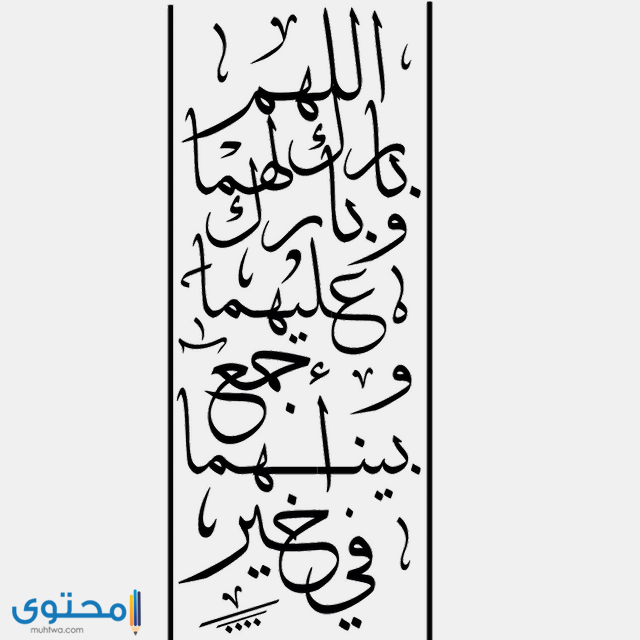 اللهم
بارك لهما
وبارك
عليهما
واجمع
بينهما
في خير
محتوى
muhtwa.com